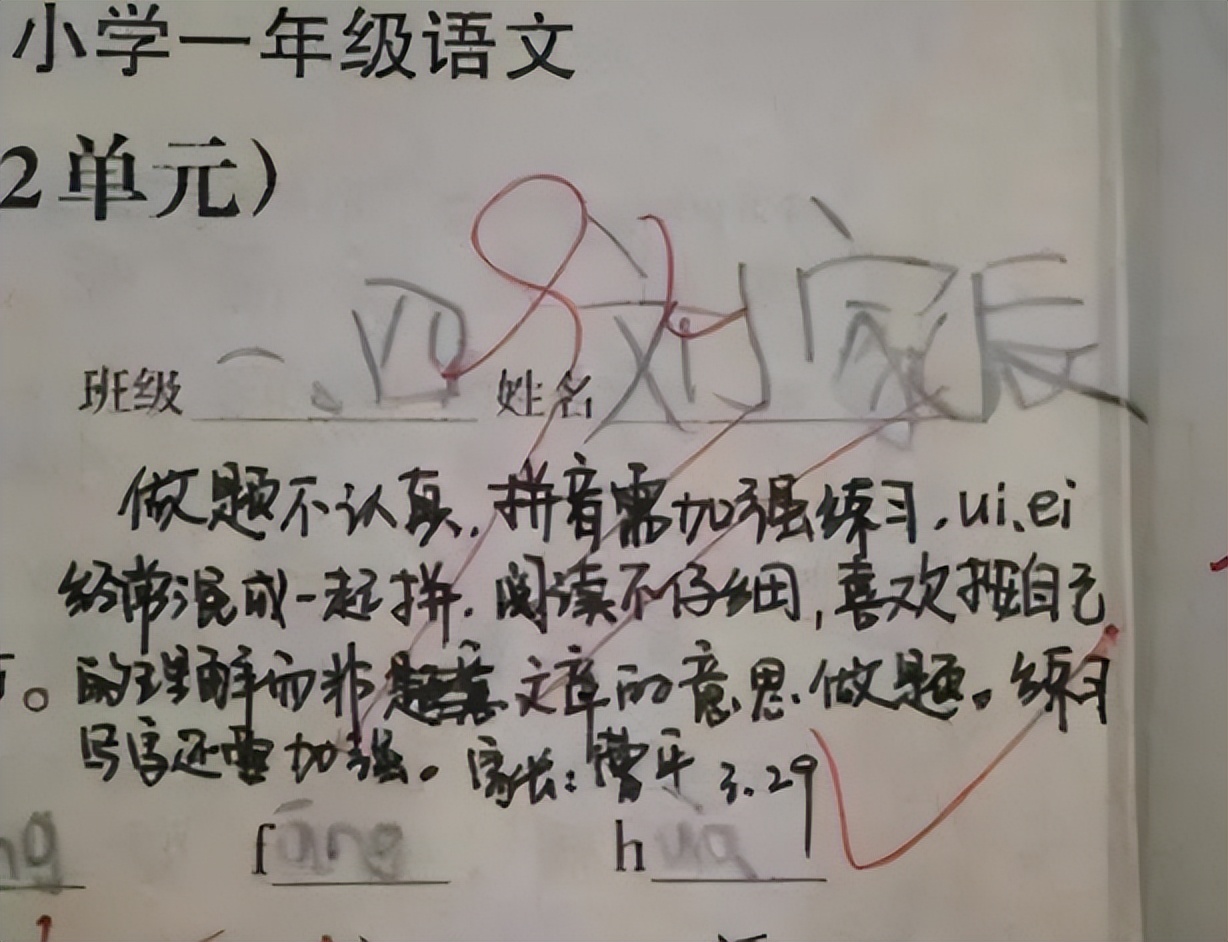 小学一年级语文
2单元）
班级 一、四 姓名 刘家辰
做题不认真，拼音需加强练习，ui、ei
经常混成一起拼。阅读不仔细，喜欢按自己
。的理解而非题意文章的意思做题。练习
写字还需加强。家长：曹平 3.29
ng f áng h